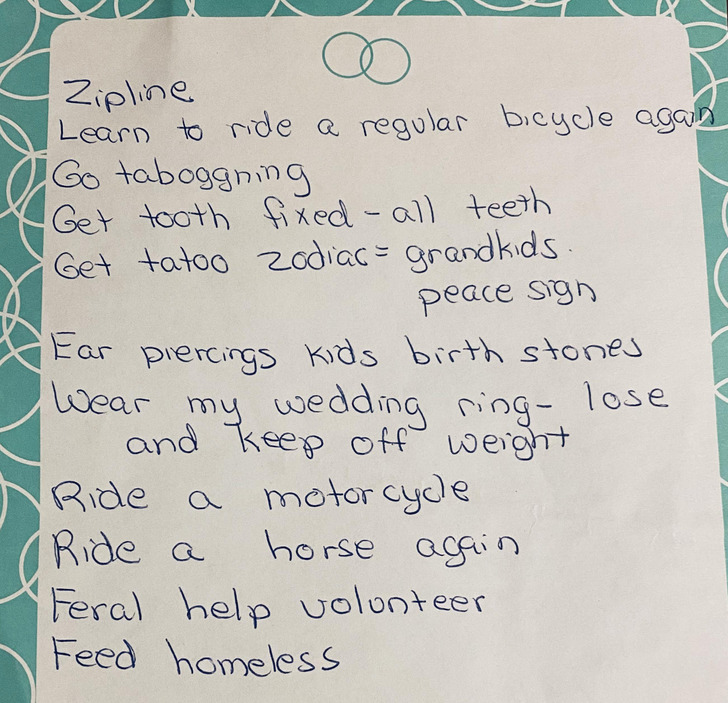 Zipline
Learn to ride a regular bicycle again
Go taboggning
Get tooth fixed - all teeth
Get tatoo zodiac = grandkids.
peace sign
Ear piercings kids birth stones
Wear my wedding ring - lose
and keep off weight
Ride a motorcycle
Ride a horse again
Feral help volunteer
Feed homeless